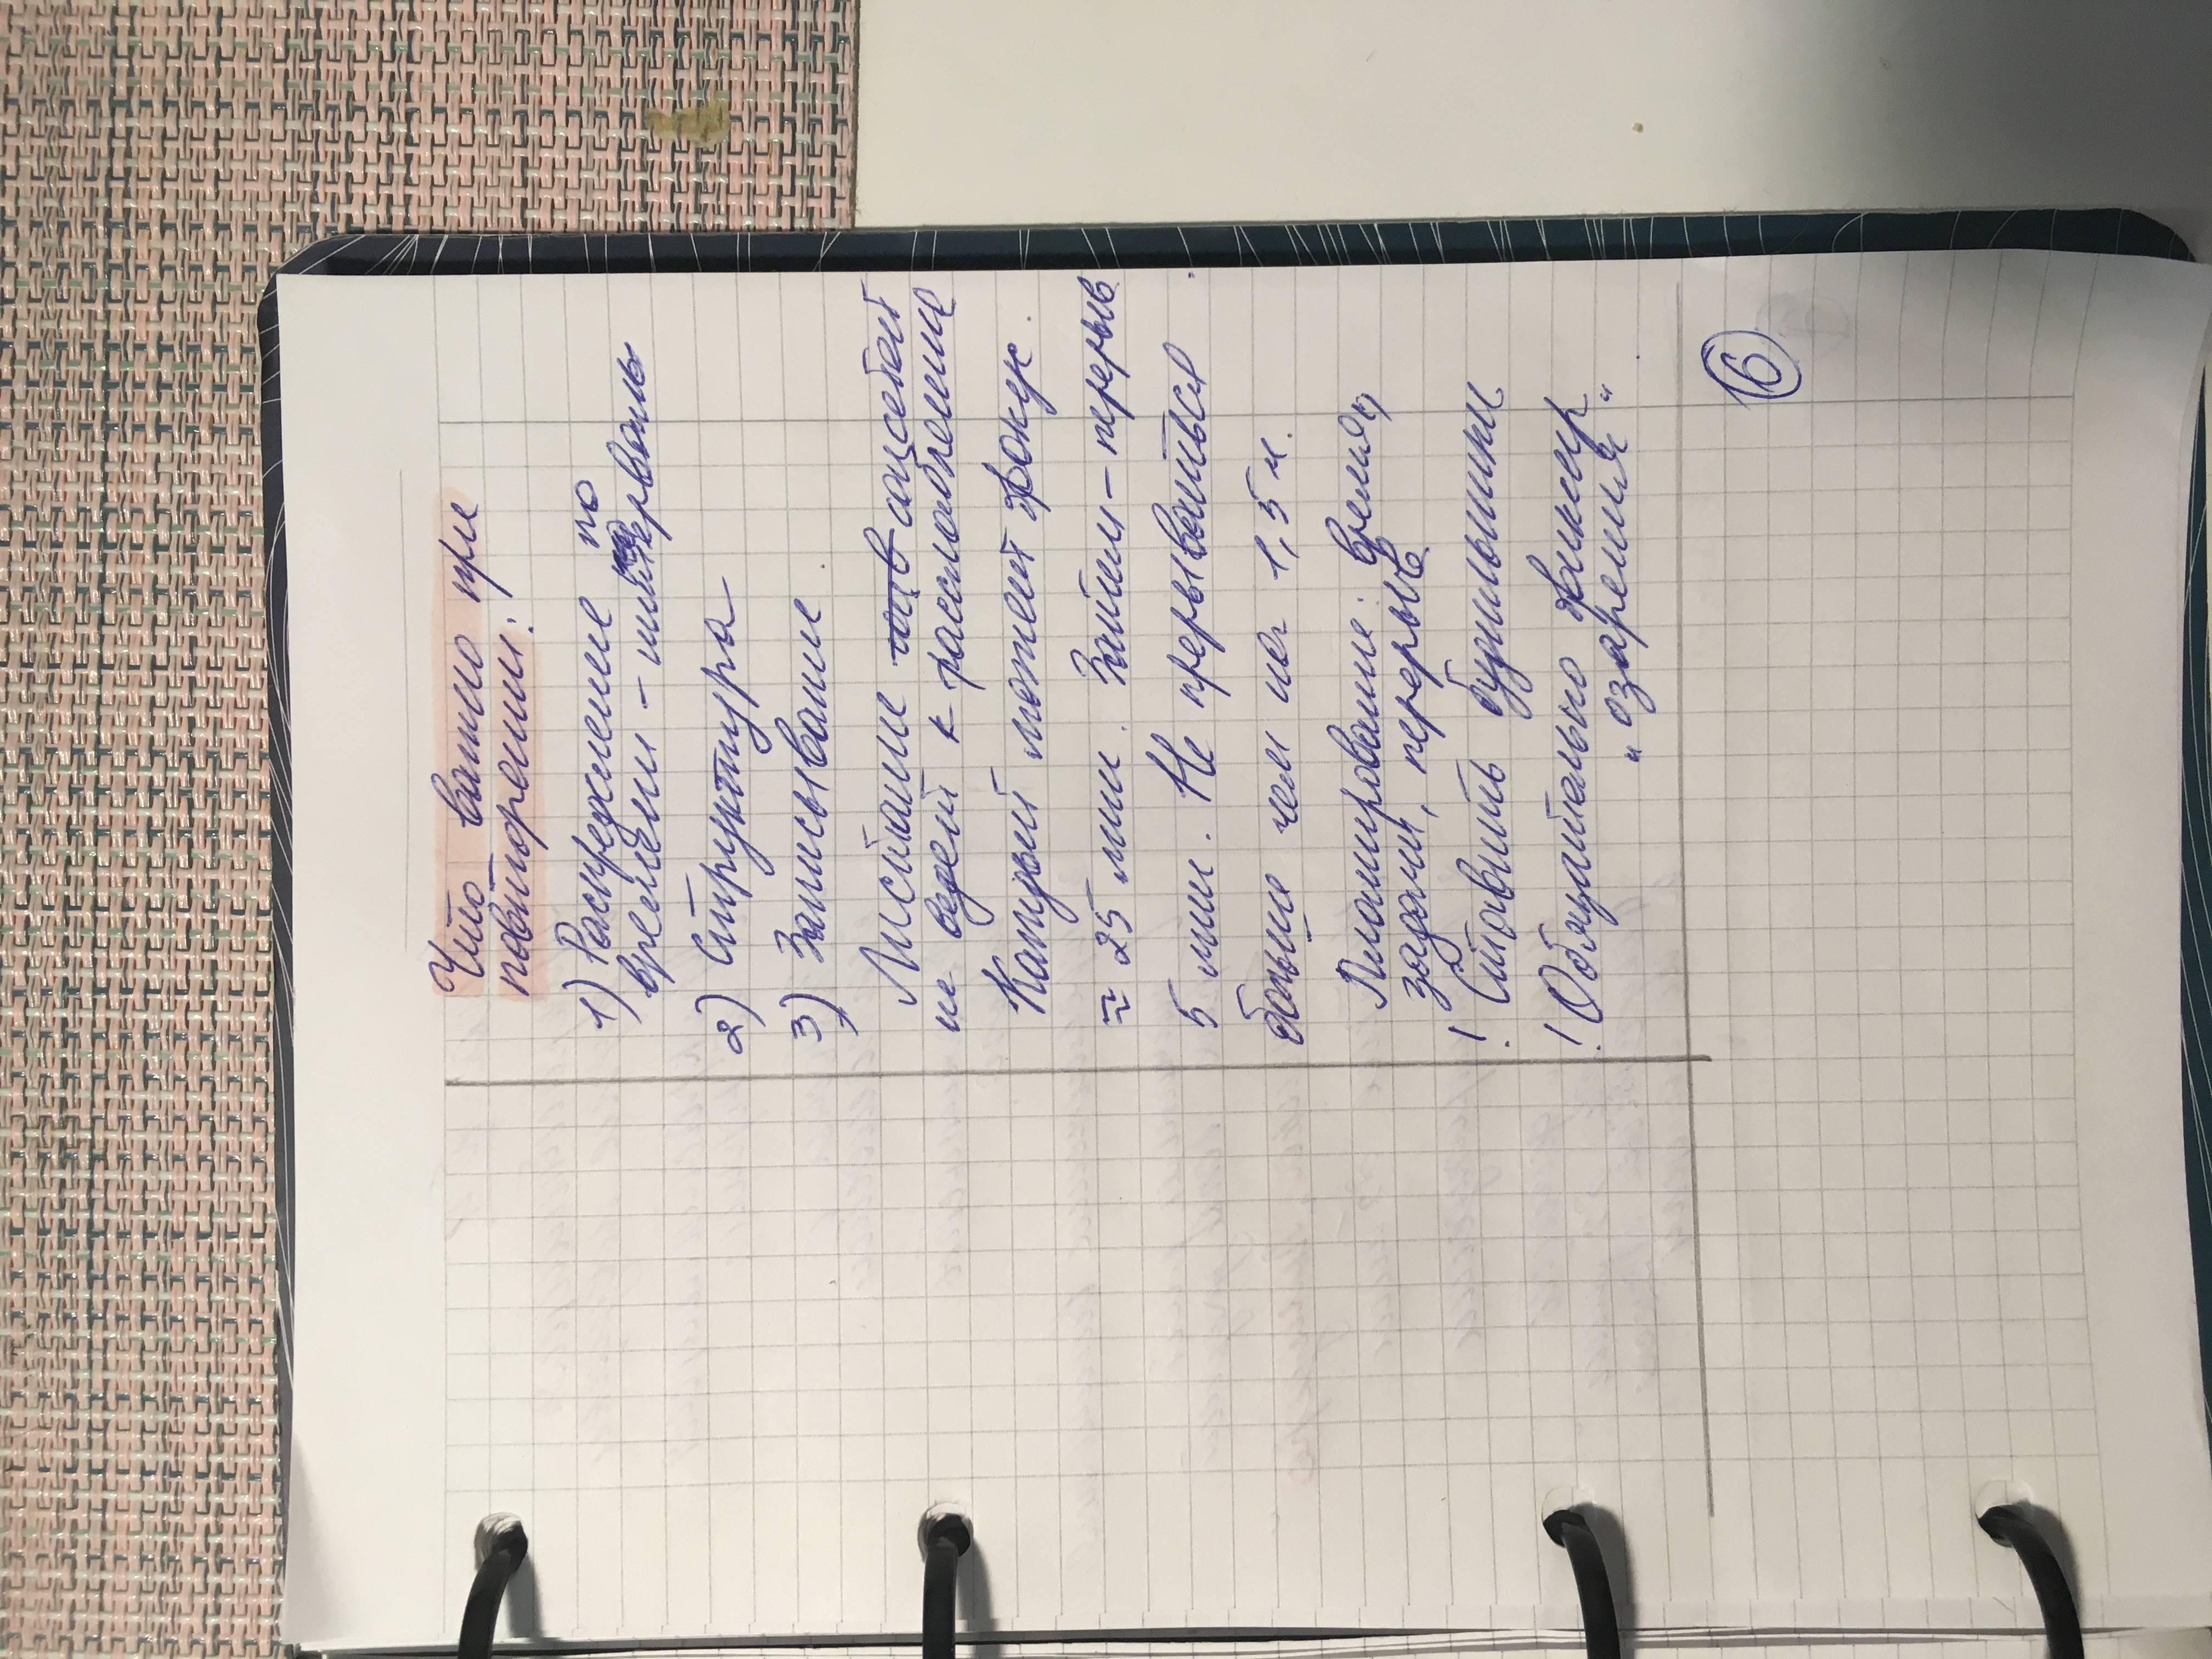 Что важно при
повторении:
1) Распределение по
времени - интервалы
2) Структура
3) Записывание
Листание соцсетей
не ведет к расслаблению
Каждый может фокус.
≈ 25 мин. Затем - перерыв
5 мин. Не прерываться
больше чем на 1,5 ч.
Планирование: время,
задачи, перерыв
! Ставить будильники
! Обязательно фиксир
„озарения“
6